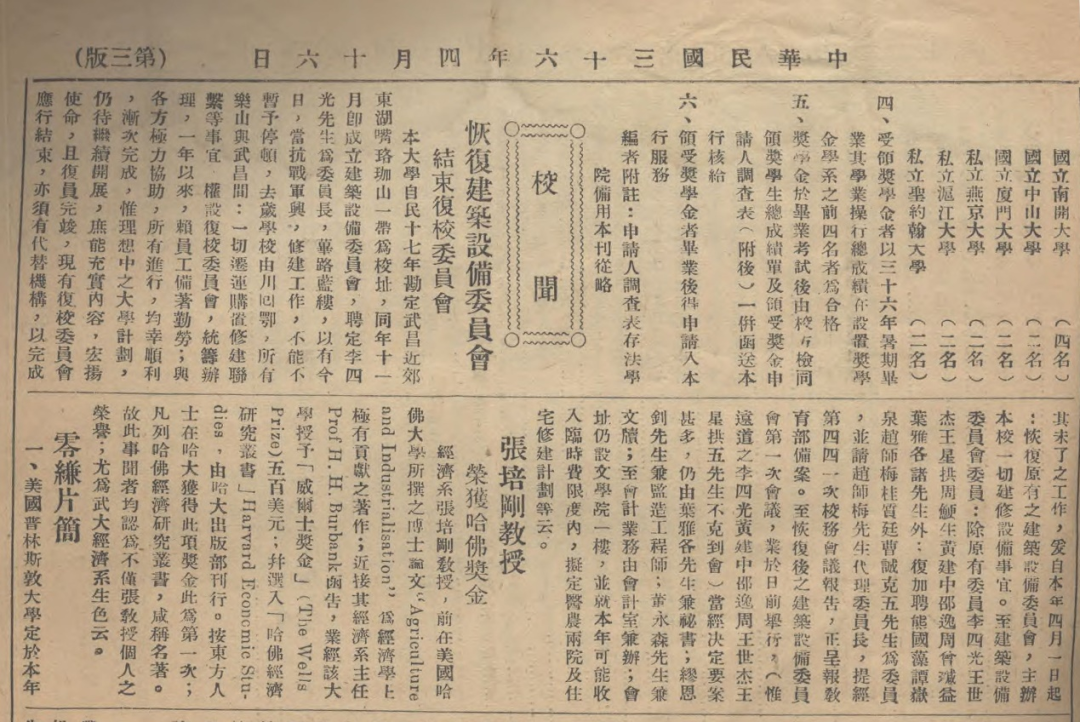 中華民國三十六年四月十六日
(第三版)
國立南開大學 (四名)
國立中山大學 (二名)
國立廈門大學 (二名)
私立燕京大學 (二名)
私立滬江大學 (二名)
私立聖約翰大學 (二名)
四、受領獎學金者以三十六年暑期畢
業其學業操行總成績在設置獎學
金學系之前四名者為合格
五、獎學金於畢業考試後由校方檢同
領獎學生總成績單及領受獎金申
請人調查表(附後)一倂函送本
行核給
六、領受獎學金者畢業後得申請入本
行服務
編者附註:申請人調查表存法學
院備用本刊從略
校聞
恢復建築設備委員會
結束復校委員會
本大學自民十七年勘定武昌近郊
東湖嘴珞珈山一帶爲校址,同年十一
月卽成立建築設備委員會,聘定李四
光先生爲委員長,篳路藍縷,以有今
日,當抗戰軍興,修建工作,不能不
暫予停頓,去歲學校由川囘鄂,所有
樂山與武昌間:一切遷運購置修建聯
繫等事宜 權設復校委員會,統籌辦
理,一年以來,賴員工備著勤勞;與
各方極力協助,所有進行,均幸順利
,漸次完成,惟理想中之大學計劃,
仍待繼續開展,庶能充實內容,宏揚
使命,且復員完竣,現有復校委員會
應行結束,亦須有代替機構,以完成
其未了之工作,爰自本年四月一日起
:恢復原有之建築設備委員會,主辦
本校一切建修設備事宜。至建築設備
委員會委員:除原有委員李四光王世
杰王星拱周鯁生黃建中邵逸周曾瑊益
葉雅各諸先生外:復加聘熊國藻譚嶽
泉趙師梅桂質廷曹誠克五先生爲委員
,並請趙師梅先生代理委員長,提經
第四四一次校務會議報告,正呈報教
育部備案。至恢復後之建築設備委員
會第一次會議,業於日前舉行,(惟
遠道之李四光黃建中邵逸周王世杰王
星拱五先生不克到會)當經決定要案
甚多,仍由葉雅各先生兼祕書;繆恩
釗先生兼監造工程師;董永森先生兼
文牘;至會計業務由會計室兼辦;會
址仍設文學院一樓,並就本年可能收
入臨時費限度內,擬定醫農兩院及住
宅修建計劃等云。
張培剛教授
榮獲哈佛獎金
經濟系張培剛教授,前在美國哈
佛大學所撰之博士論文“Agriculture
and Industrialisation”爲經濟學上
極有貢獻之著作;近接其經濟系主任
Prof H. H. Burbank函告,業經該大
學授予「威爾士獎金」(The Wells
Prize)五百美元;幷選入「哈佛經濟
研究叢書」Harvard Economic Stu-
dies,由哈大出版部刊行。按東方人
士在哈大獲得此項獎金此爲第一次;
凡列哈佛經濟研究叢書,咸稱名著。
故此事聞者均認爲不僅張教授個人之
榮譽;尤爲武大經濟系生色云。
零縑片簡
一、美國普林斯敦大學定於本年